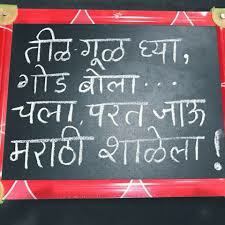 तीळ-गूळ घ्या,
गोड बोला...
चला, परत जाऊ
मराठी शाळेला!